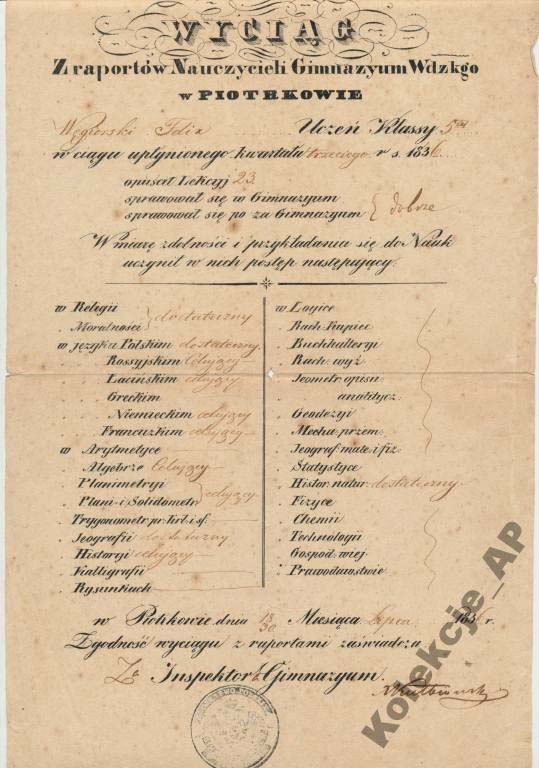 WYCIĄG
Z raportów Nauczycieli Gimnazyum Wdzkgo
w PIOTRKOWIE
Węgierski Felix Uczeń Klassy 5tej
w ciągu upłynionego kwartału trzeciego r s. 1836
opuścił Lekcyj 23
sprawował się w Gimnazyum
sprawował się po za Gimnazyum } dobrze
W miarę zdolności i przykładania się do Nauk
uczynił w nich postęp następujący.
w Religii
. Moralności } dostateczny
w języku Polskim dostateczny
. . Rossyjskim Celujący
. . Łacińskim celujący
. . Greckim
. . Niemieckim celujący
. . Francuzkim celujący
w Arytmetyce
. Algebrze Celujący
. Planimetryi
. Plani-i Solidometr } celujący
. Trygonometr. pr. krl. i sf.
. Jeografii dostateczny
. Historyi celujący
. Kalligrafii
. Rysunkach
w Logice
. Rach. Kupiec
. Buchhalteryi
. Rach. wyż.
. Jeometr. opisu.
. analitycz.
. Geodezyi
. Mecha. przem.
. Jeograf. mate. i fiz.
. Statystyce
. Histor. natur. dostateczny
. Fizyce
. Chemii
. Technologii
. Gospod. wiej.
. Prawodawstwie
w Piotrkowie dnia 18/30 Miesiąca Lipca 1836 r.
Zgodność wyciągu z raportami zaświadcza
Za Inspektora Gimnazyum.
Kolekcje AP